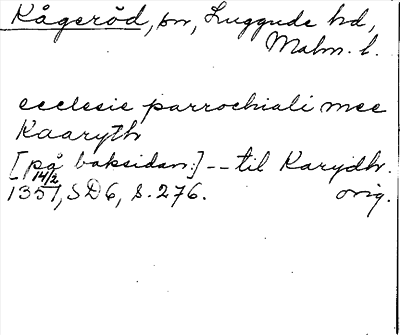 Kågeröd, sn, Luggude hd,
Malm. l.
ecclesie parrochiali mee
Kaaryth
[på baksidan:] -- til Karydh.
14/2
1351, SD6, s. 276. orig.